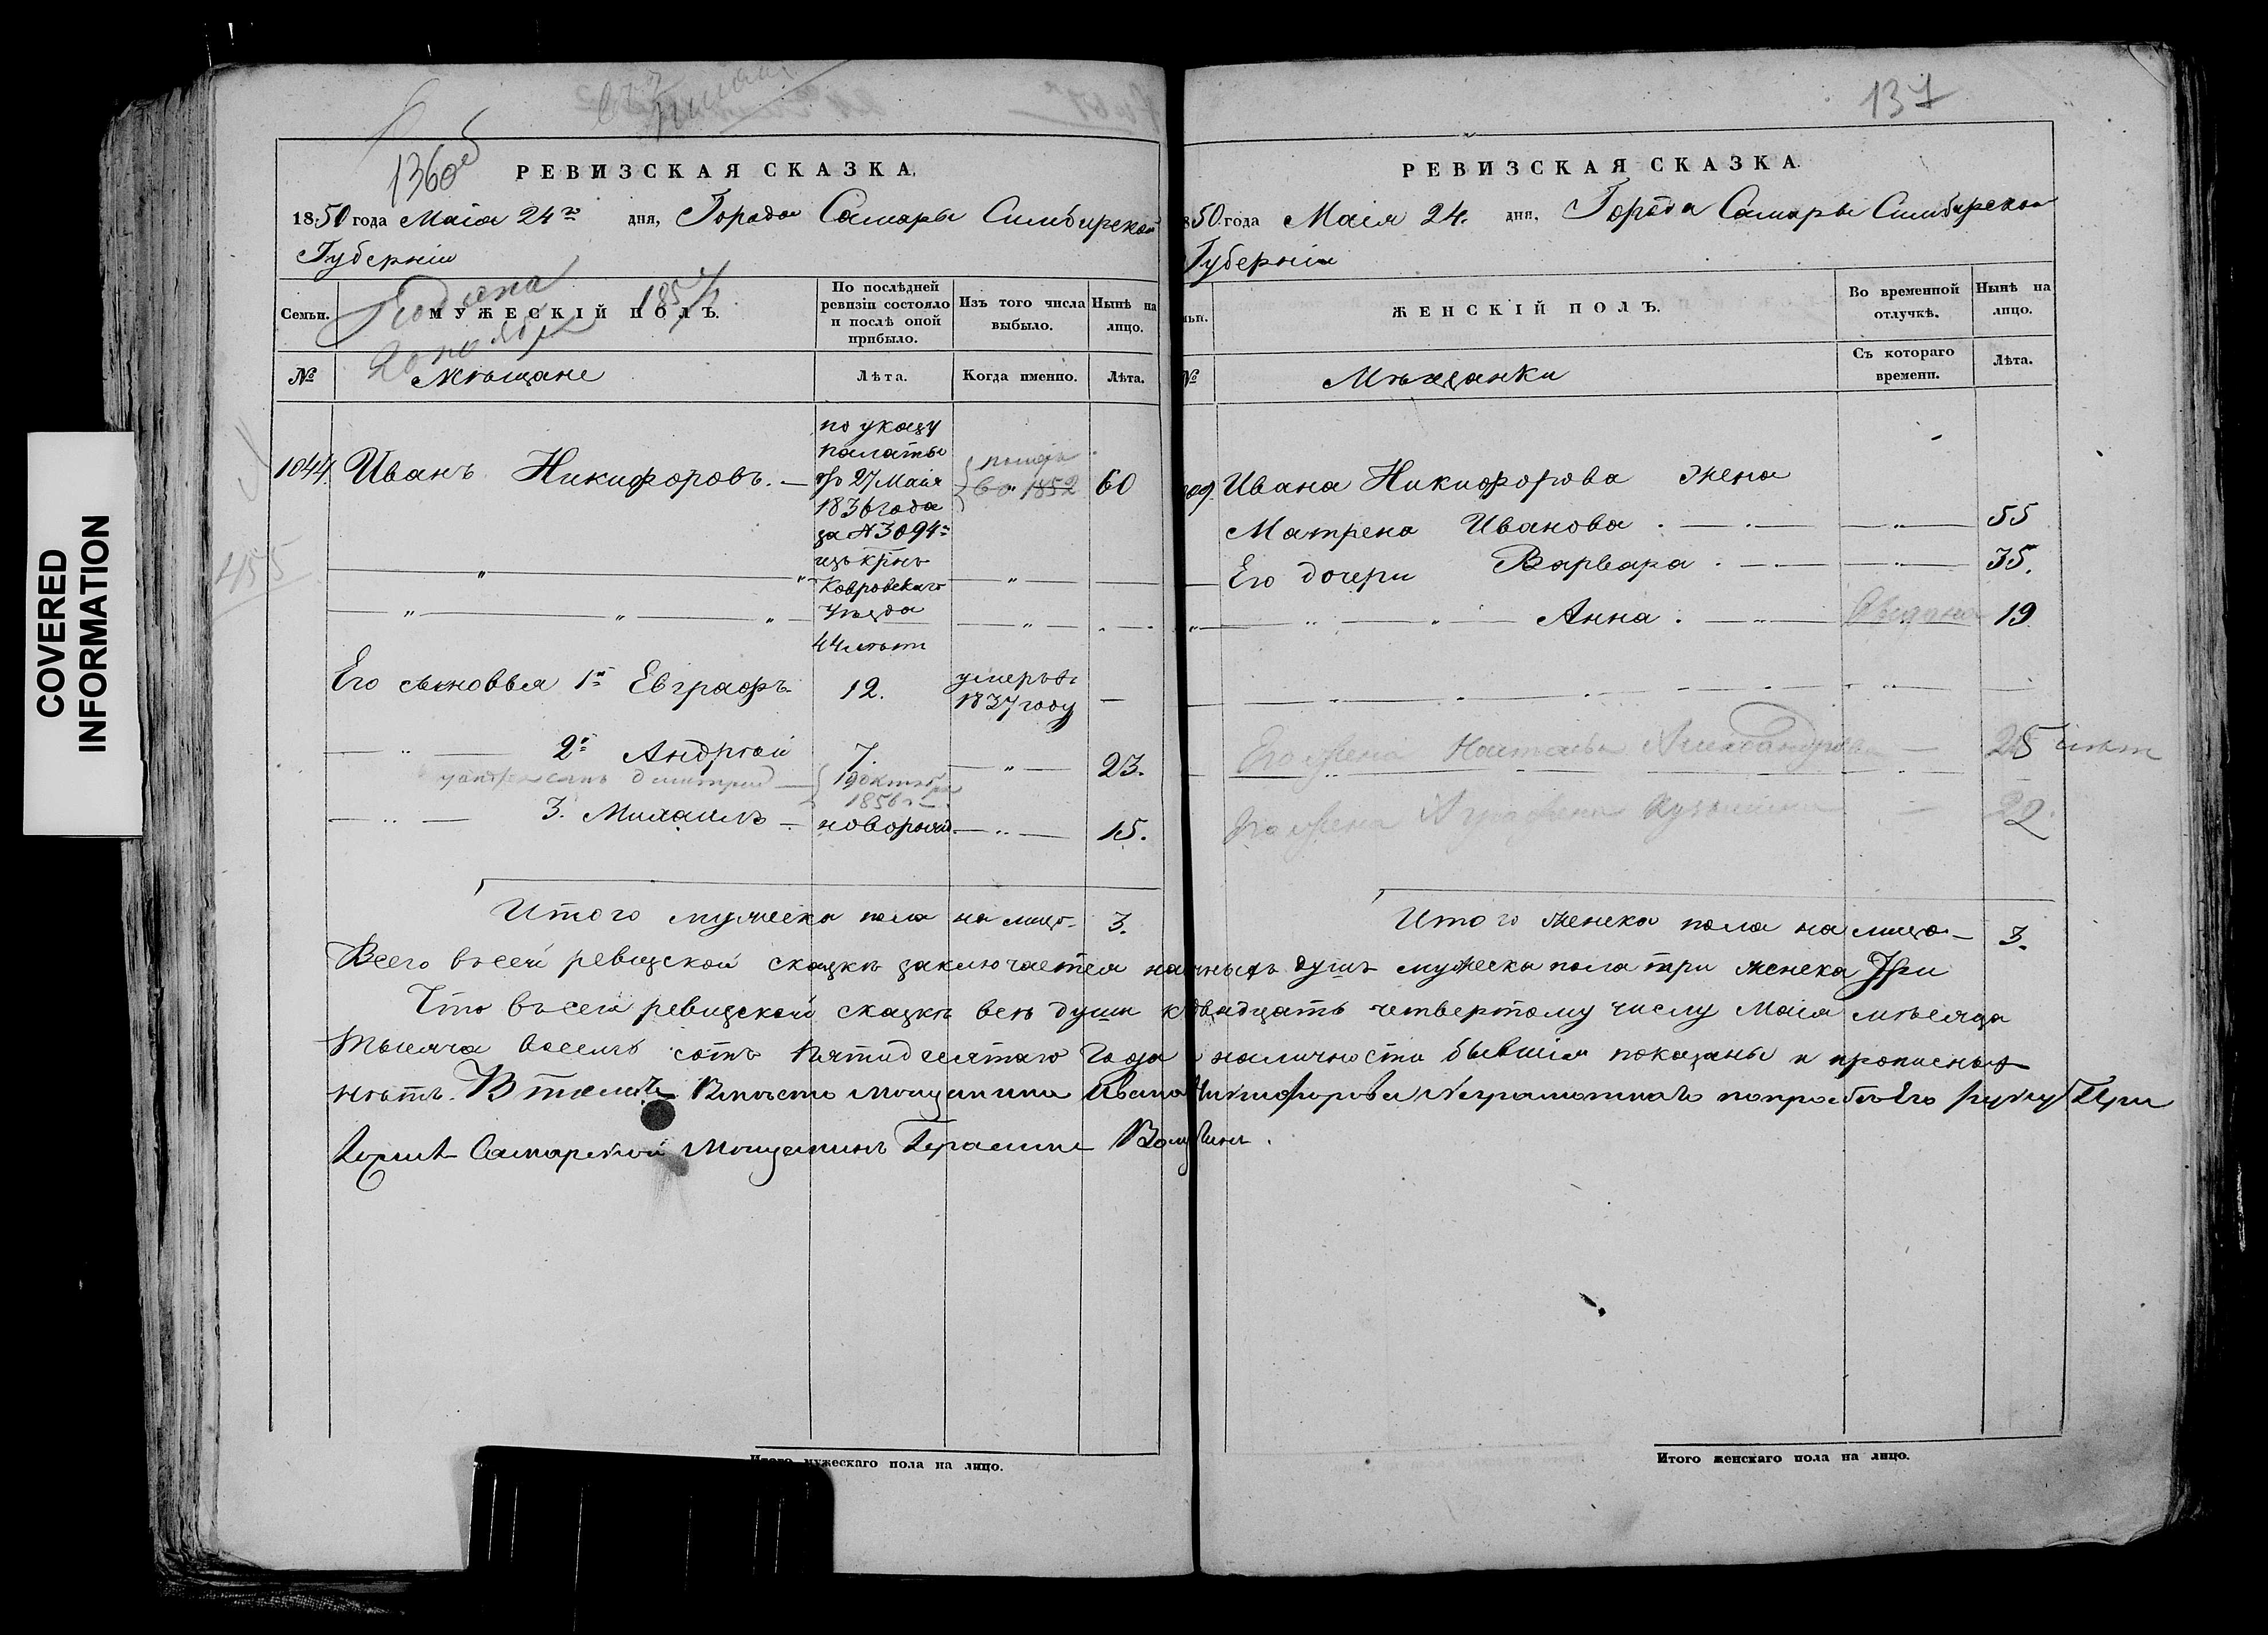 COVERED
INFORMATION
136об
РЕВИЗСКАЯ СКАЗКА.
1850 года Маія 24го дня, Города Самары Симбирской
Губерніи
Семьи. МУЖЕСКІЙ ПОЛЪ. 1857
По послѣдней ревизіи состояло и послѣ оной прибыло.
Изъ того числа выбыло.
Нынѣ на лицо.
№ Мѣщане Лѣта. Когда именно. Лѣта.
455
1044. Иванъ Никифоровъ. —
по указу
палаты
отъ 27 Маія
1836 года
за № 3094м
изъ
Ковровскаго
Уѣзда
44 лѣтъ
1852
60
Его сыновья 1й Евграфъ. 12. умеръ въ 1837 году —
2й Андрѣй 7. — " — 23.
сынъ Дмитрий — 19 октяб 1856
3. Михаилъ — новорож. — " — 15.
Итого мужеска пола на лицо — 3.
137
РЕВИЗСКАЯ СКАЗКА.
1850 года Маія 24. дня, Города Самары Симбирской
Губерніи
ЖЕНСКІЙ ПОЛЪ.
Во временной отлучкѣ.
Нынѣ на лицо.
№ Мѣщанки Съ котораго времени. Лѣта.
Ивана Никифорова жена
Матрена Иванова . — . — — " — 55
Его дочери Варвара . — . — — " — 35.
" Анна . — " — 19
Его жена Наталья Александрова — 25 лѣт
Его жена Аграфена Кузьмина — 22.
Итого женска пола на лицо — 3.
Всего въ сей ревизской сказкѣ заключается наличныхъ душъ мужеска пола три женска Три
Что въ сей ревизской сказкѣ всѣ души къ двадцать четвертому числу Маія мѣсяца
тысяча восемь сотъ пятидесятаго года въ наличности бывшія показаны и прописныхъ
нѣтъ. В томъ Вмѣсто мещанина Ивана Никифорова Неграмотнаго по прозбѣ Его руку При
ложилъ Самарской Мещанинъ Герасимъ
Итого мужескаго пола на лицо.
Итого женскаго пола на лицо.